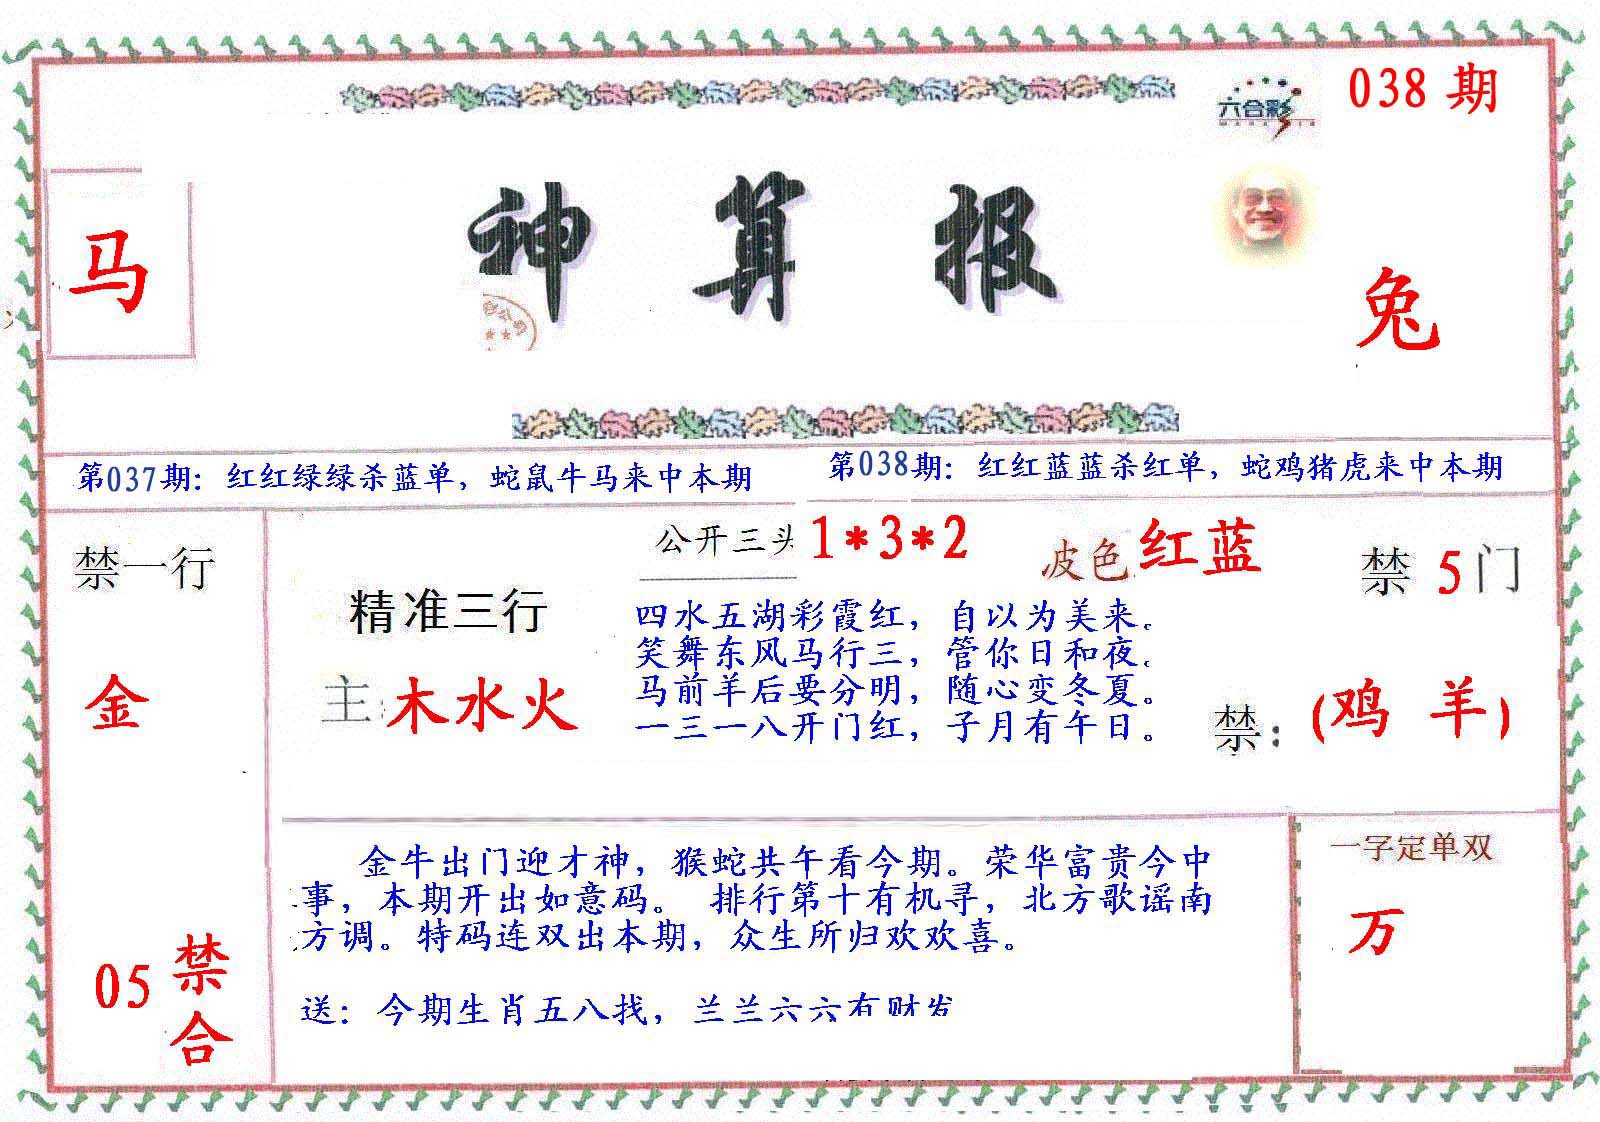 六合彩
038 期
马
神算报
兔
第037期：红红绿绿杀蓝单，蛇鼠牛马来中本期
第038期：红红蓝蓝杀红单，蛇鸡猪虎来中本期
禁一行
金
05 禁合
精准三行
主:木水火
公开三头 1*3*2
皮色 红蓝
四水五湖彩霞红，自以为美来。
笑舞东风马行三，管你日和夜。
马前羊后要分明，随心变冬夏。
一三一八开门红，子月有午日。
禁 5 门
禁：(鸡 羊)
金牛出门迎才神，猴蛇共午看今期。荣华富贵今中
事，本期开出如意码。 排行第十有机寻，北方歌谣南
方调。特码连双出本期，众生所归欢欢喜。
送：今期生肖五八找，兰兰六六有财发
一字定单双
万